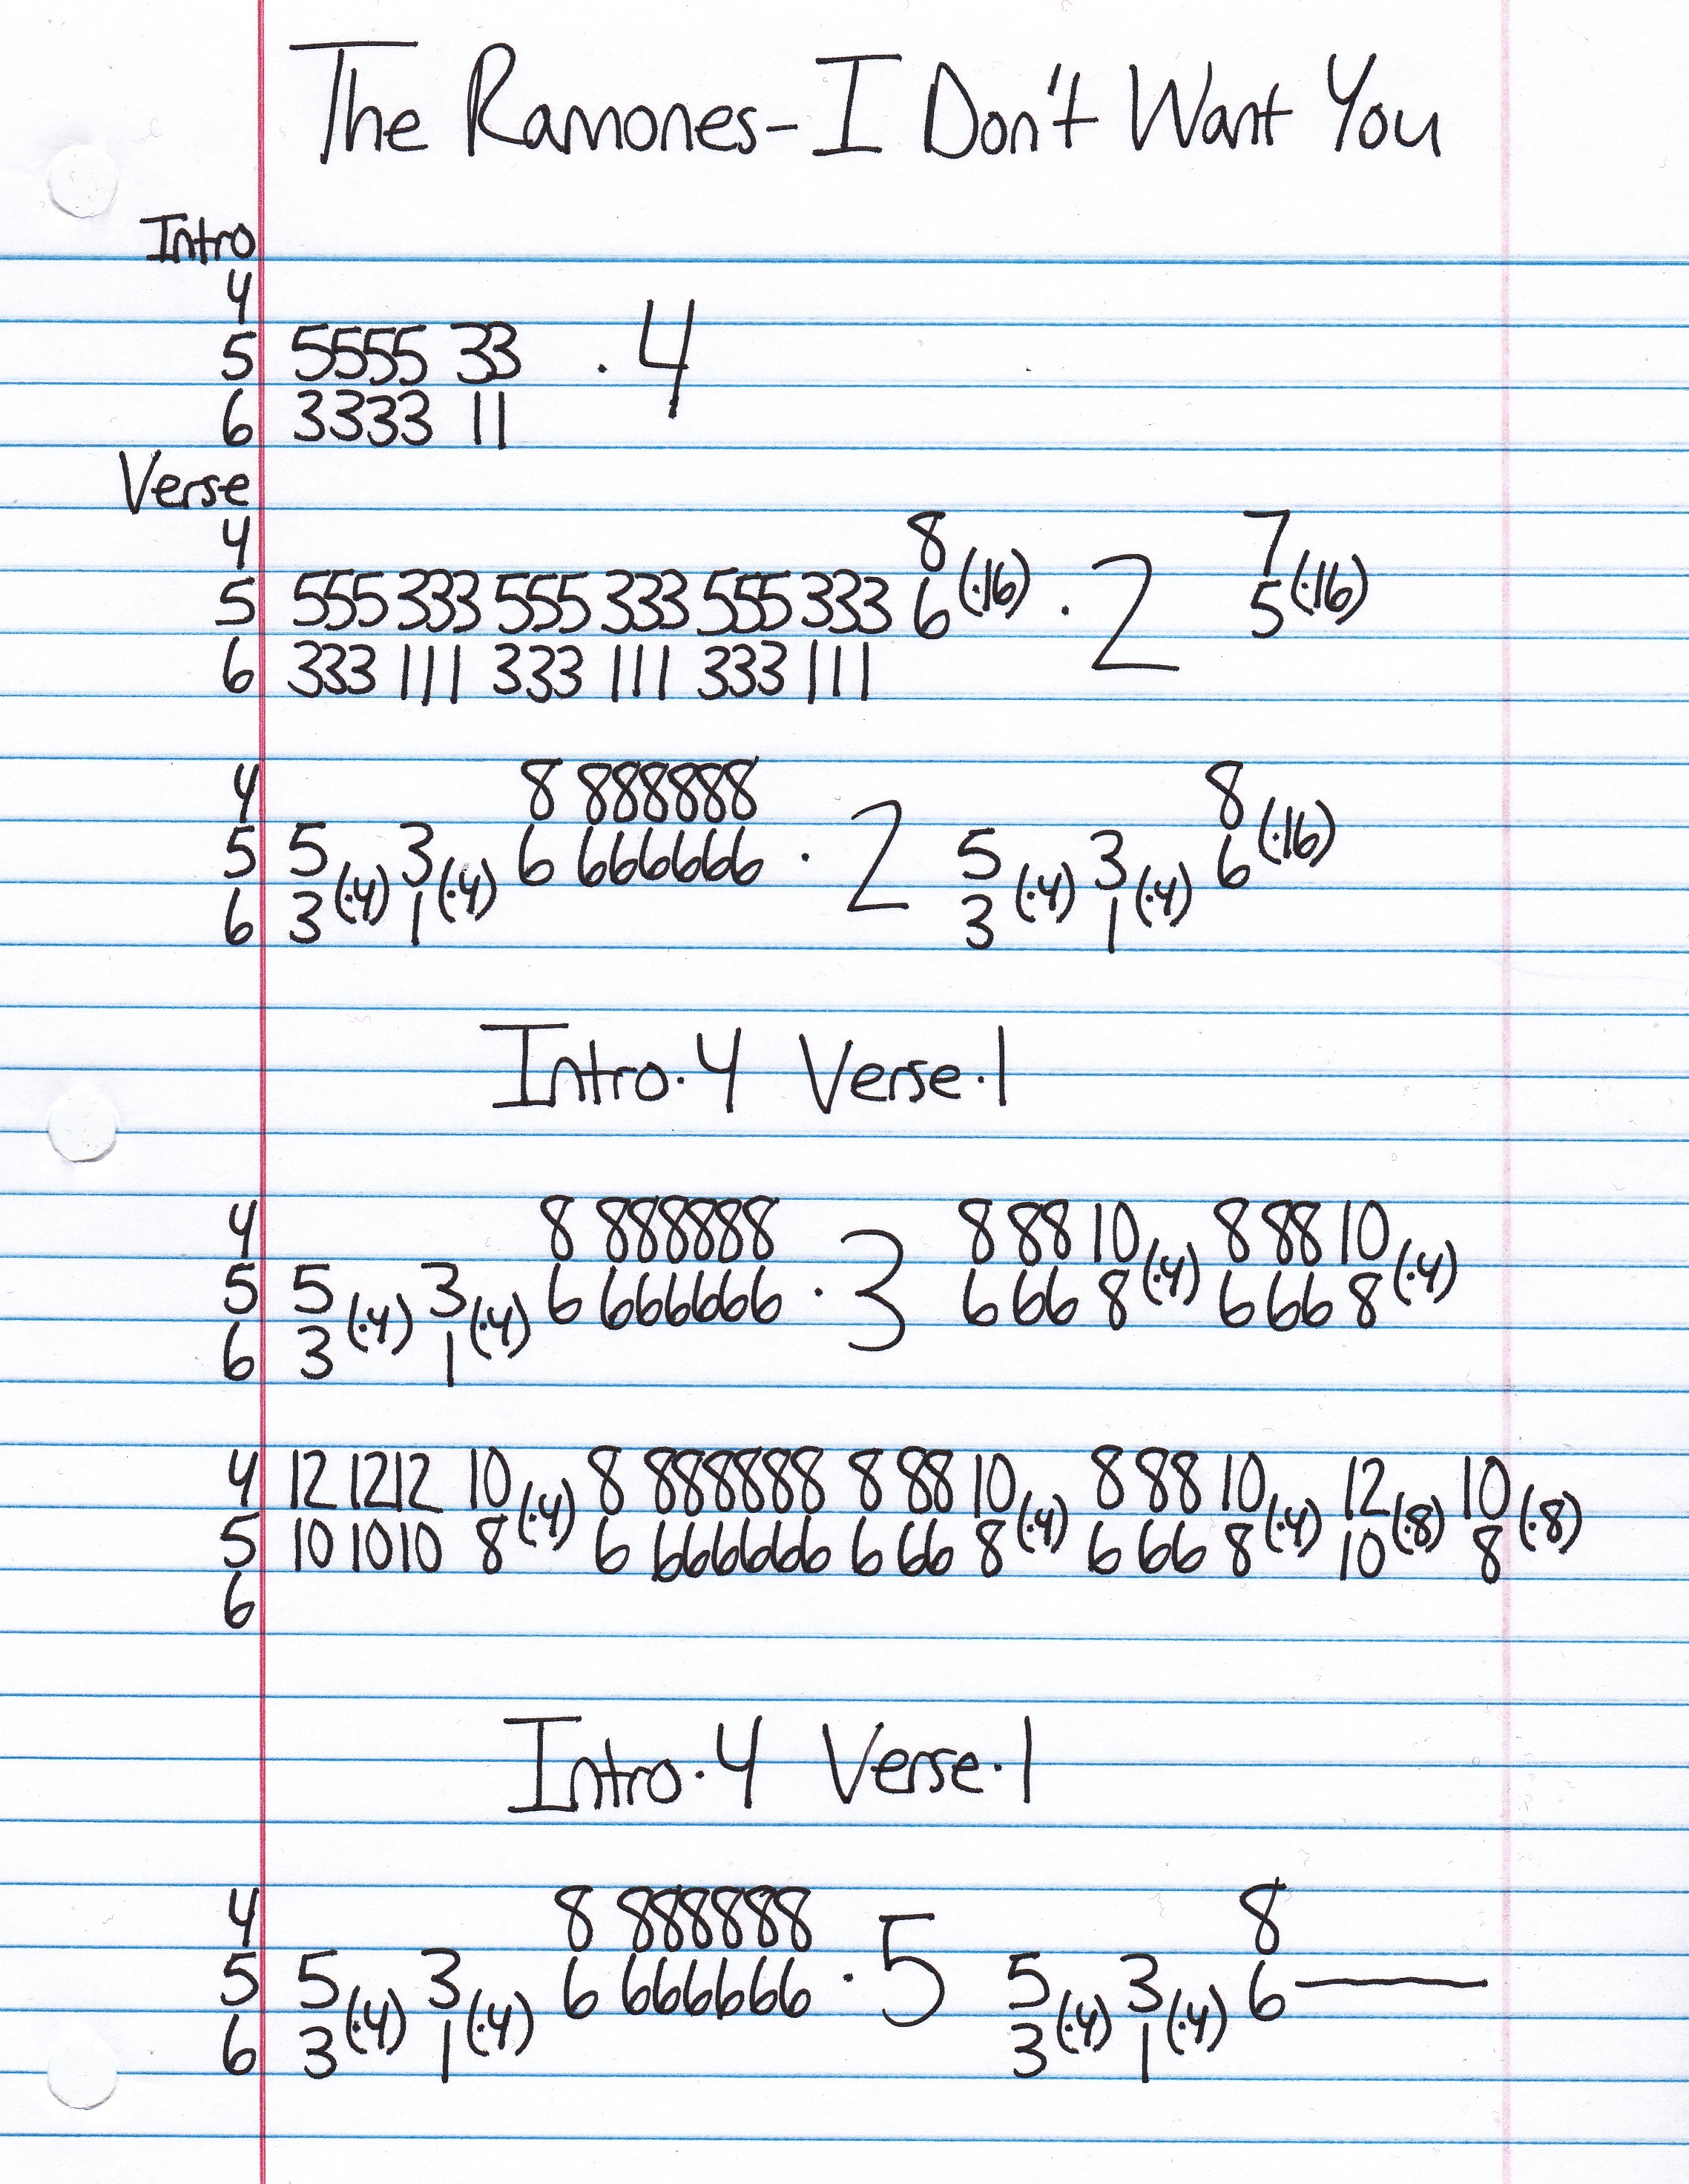 The Ramones - I Don't Want You
Intro
4
5 5555 33 · 4
6 3333 11
Verse
4 8 7
5 555 333 555 333 555 333 6 (·16) · 2 5 (·16)
6 333 111 333 111 333 111
4 8 888888 8
5 5 (·4) 3 (·4) 6 666666 · 2 5 (·4) 3 (·4) 6 (·16)
6 3 1 3 1
Intro · 4 Verse · 1
4 8 888888 8 88 10 8 88 10
5 5 (·4) 3 (·4) 6 666666 · 3 6 66 8 (·4) 6 66 8 (·4)
6 3 1
4 12 1212 10 (·4) 8 888888 8 88 10 (·4) 8 88 10 (·4) 12 (·8) 10 (·8)
5 10 1010 8 6 666666 6 66 8 6 66 8 10 8
6
Intro · 4 Verse · 1
4 8 888888 8
5 5 (·4) 3 (·4) 6 666666 · 5 5 (·4) 3 (·4) 6 ———
6 3 1 3 1